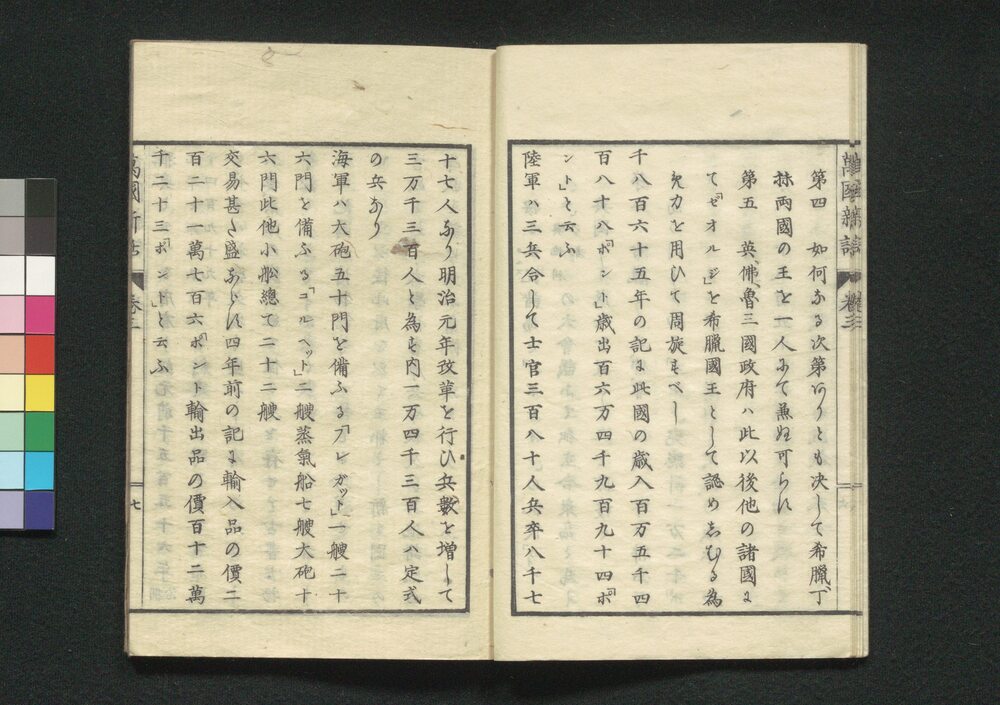 第四 如何なる次第ありとも決して希臘丁
抹両國の王を一人にて兼ぬ可らず
第五 英佛魯三國政府ハ此以後他の諸國に
て「ゼオルジ」を希臘國王として認めしむる為
め力を用ひて周旋すべし
千八百六十五年の記に此國の歳入百万五千四
百八十八「ポント」歳出百六万四千九百九十四「ポ
ント」と云ふ
陸軍ハ三兵合て士官三百八十人兵卒八千七
十七人なり明治元年改革を行ひ兵數を増して
三万千三百人と為す内一万四千三百人ハ定式
の兵なり
海軍ハ大砲五十門を備ふる「フレガット」一艘二十
六門を備ふる「コルヘット」二艘蒸氣船七艘大砲十
六門此他小船總て二十二艘
交易甚だ盛ならず四年前の記に輸入品の價二
百二十一萬七百六「ポント」輸出品の價百十二萬
千二十三「ポント」と云ふ
萬國新話 巻三 七